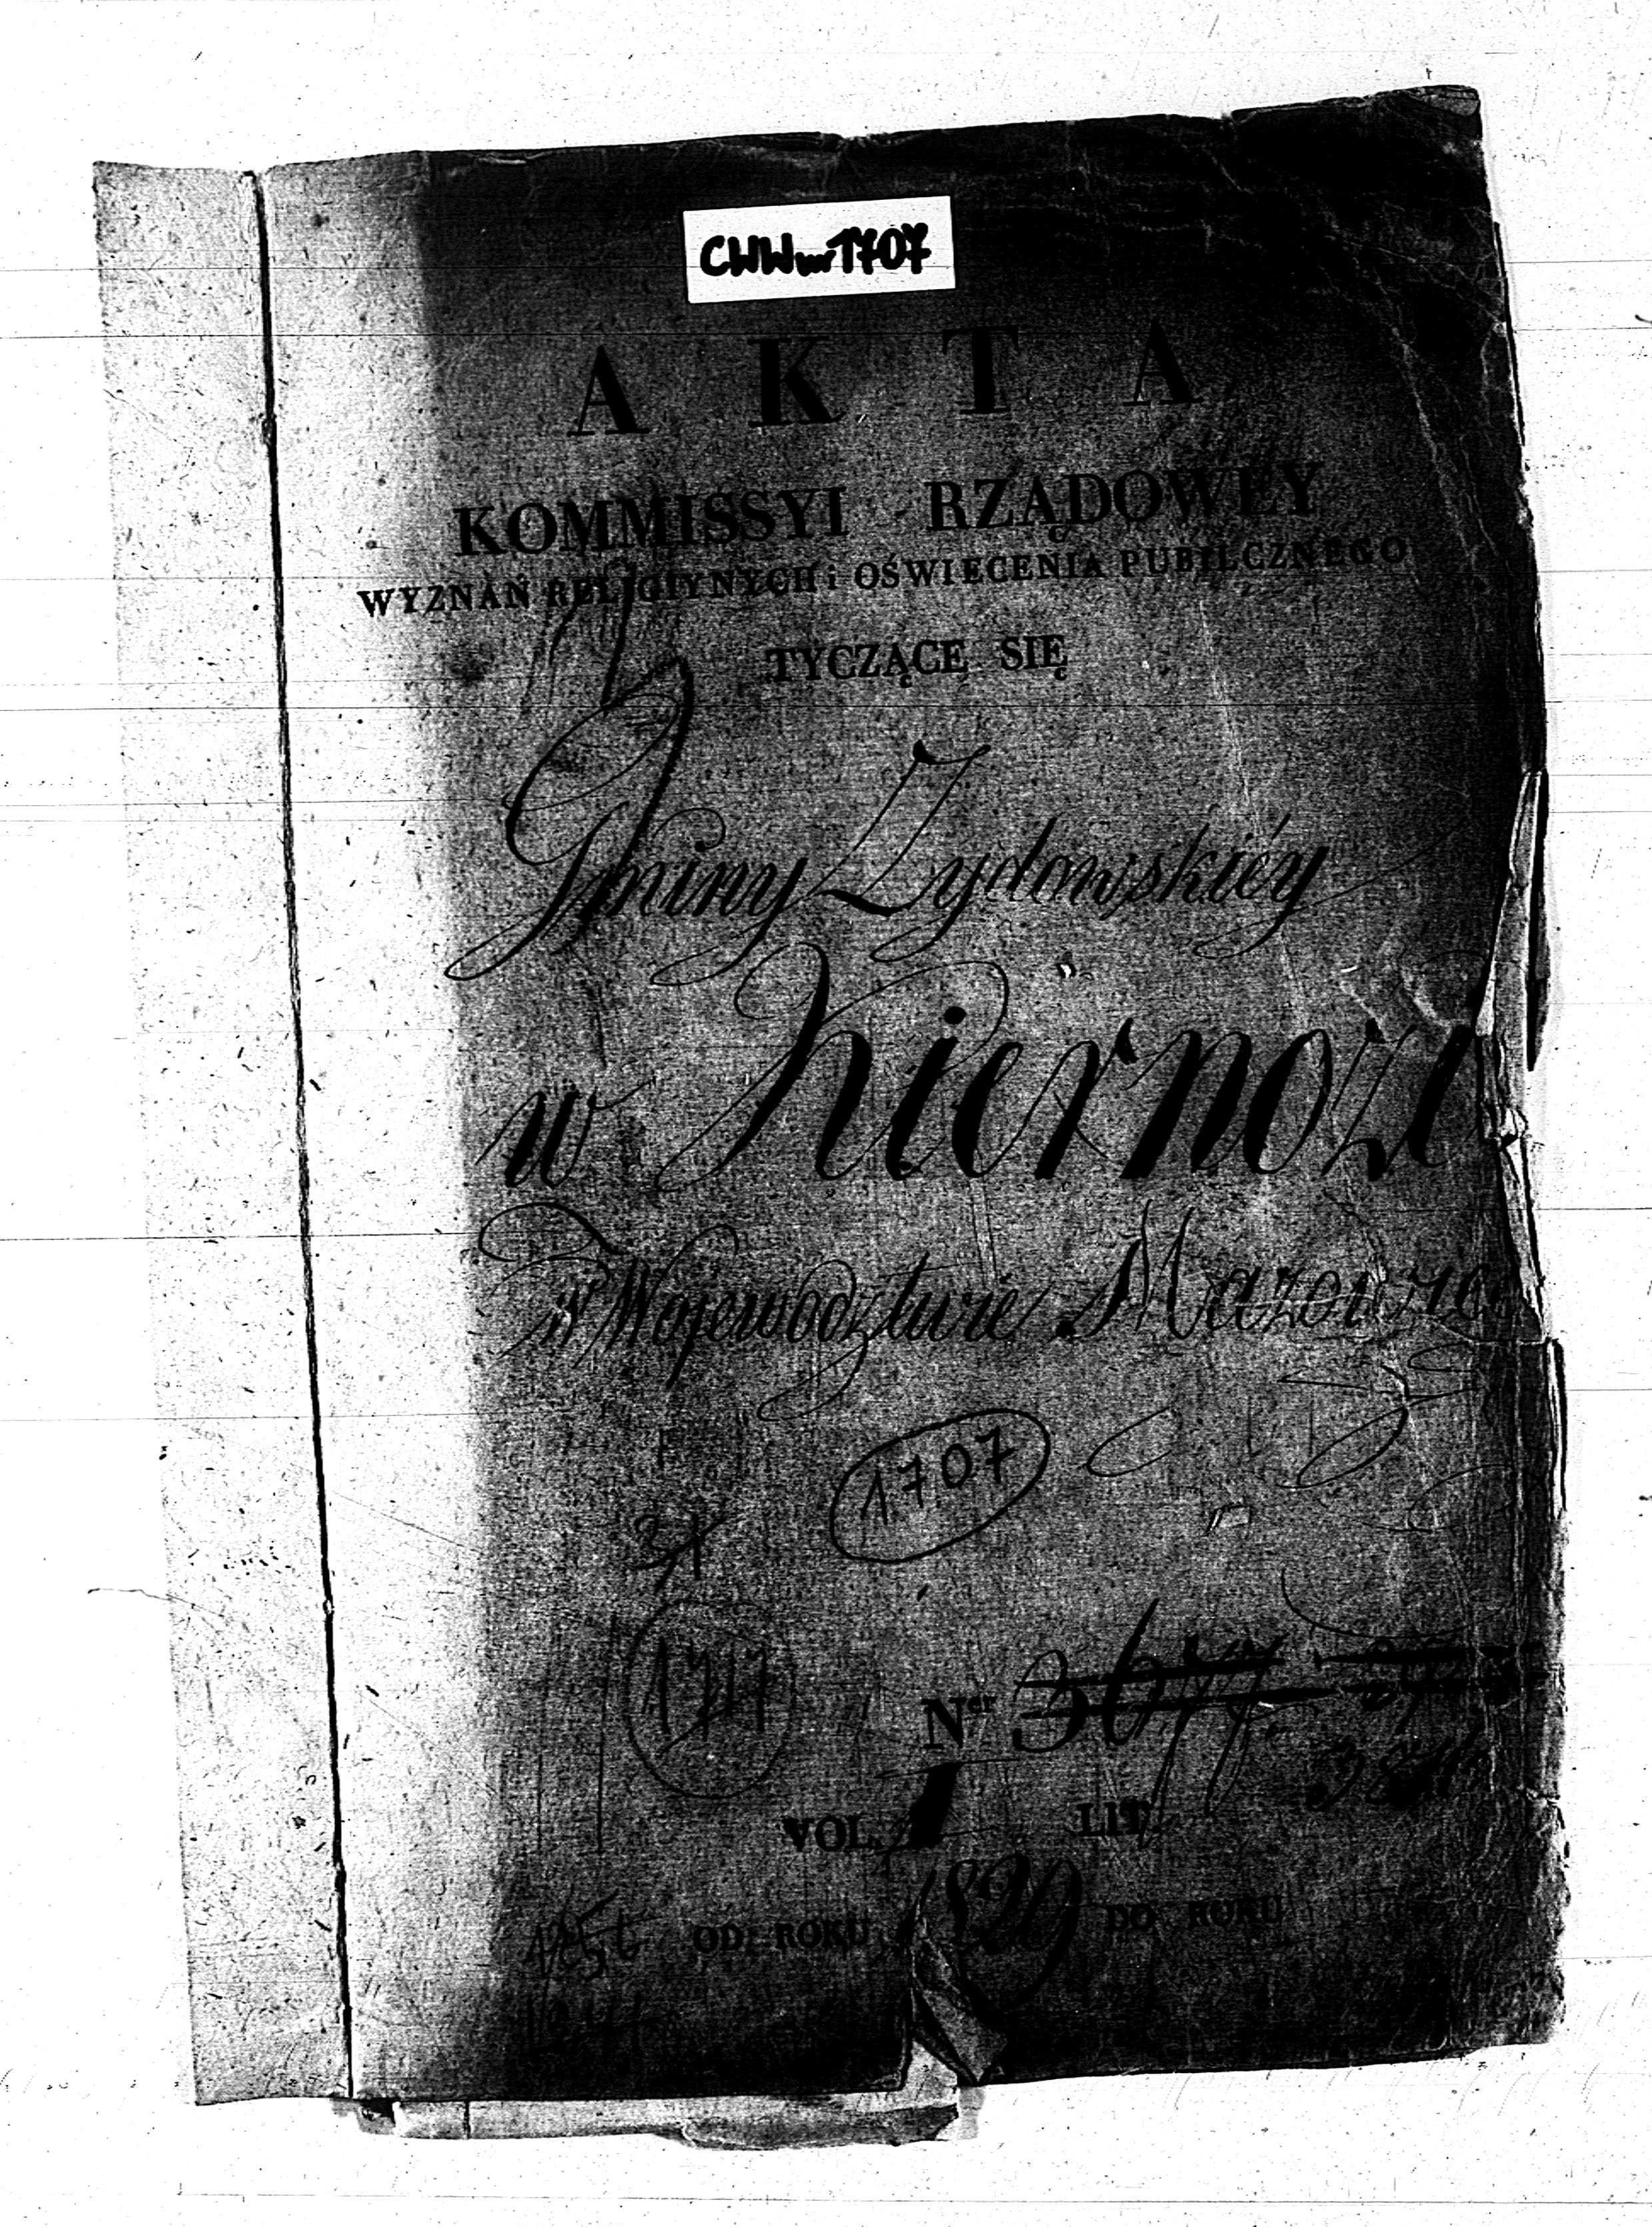 CWW nr 1707
AKTA
KOMMISSYI RZĄDOWEY
WYZNAŃ RELIGIYNYCH i OŚWIECENIA PUBILCZNEGO
TYCZĄCE SIĘ
Gminy Żydowskiéy
w Kiernozi
w Województwie Mazowie
1707
31
1717
Ner 3677.
VOL. 1 LIT.
OD ROKU 1829 DO ROKU